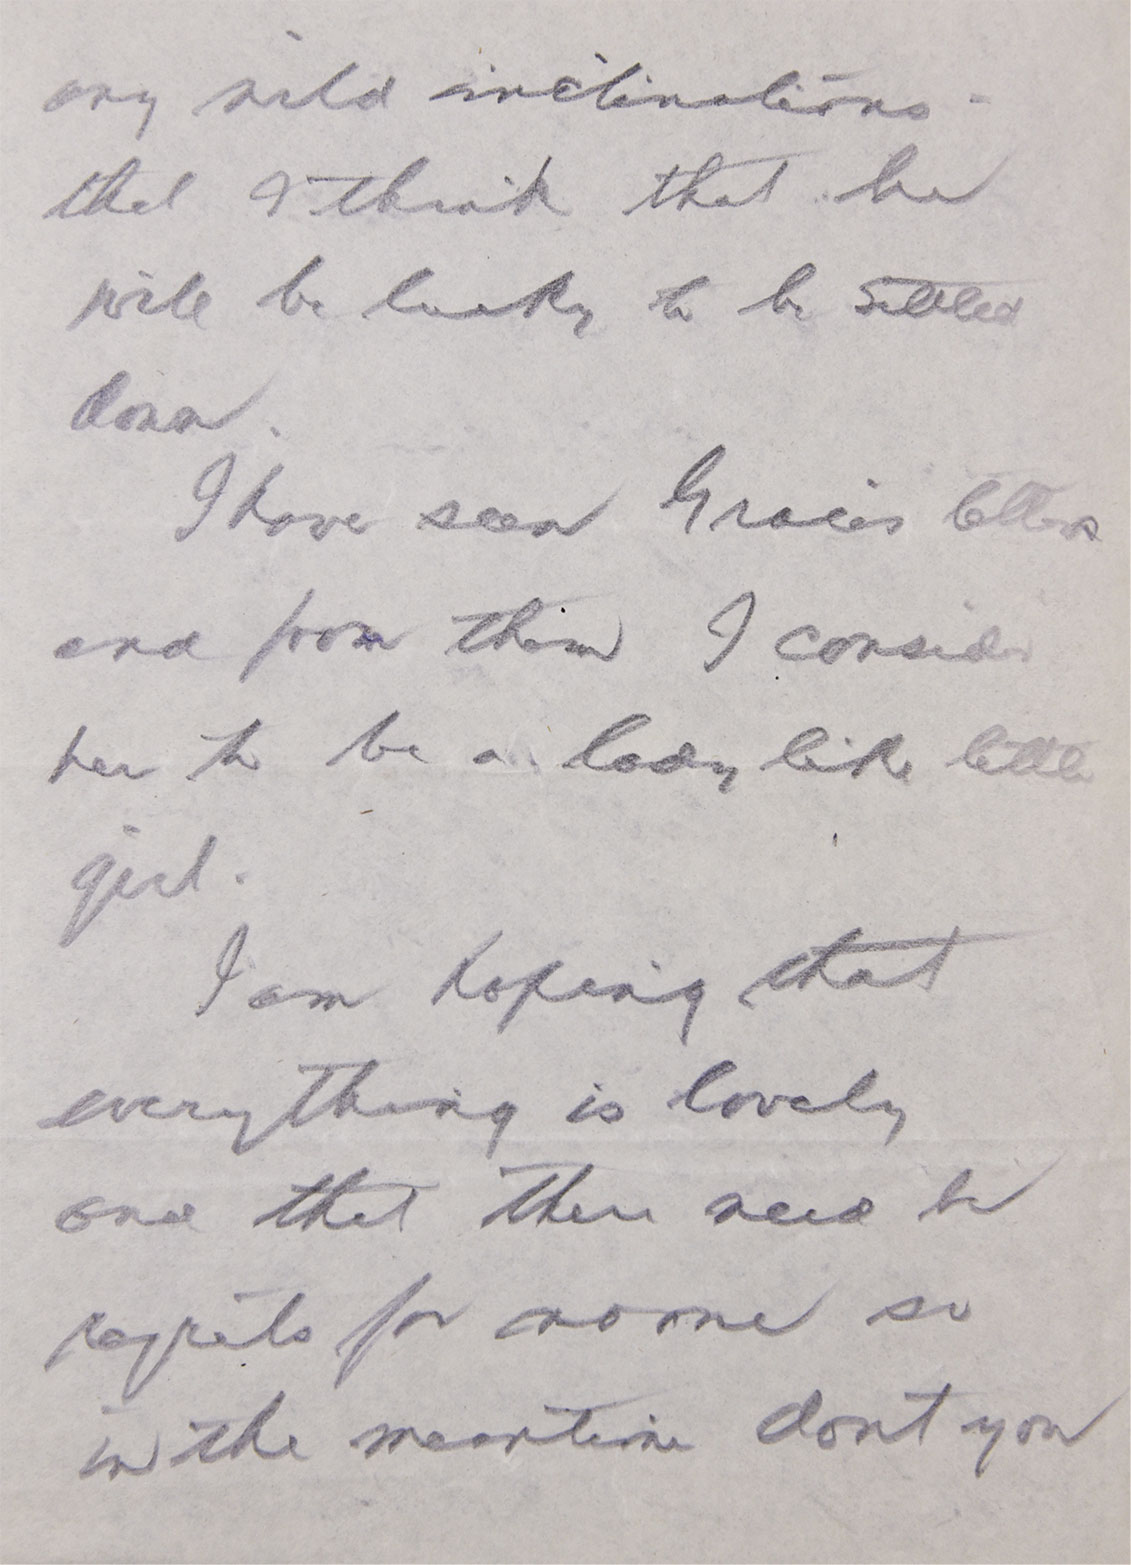 any wild inclinations -
that I think that he
will be lucky to be settled
down.
I have seen Gracies letters
and from them I consider
her to be a lady like little
girl.
I am hoping that
everything is lovely
and that there need be
regrets for no one so
in the meantime dont you